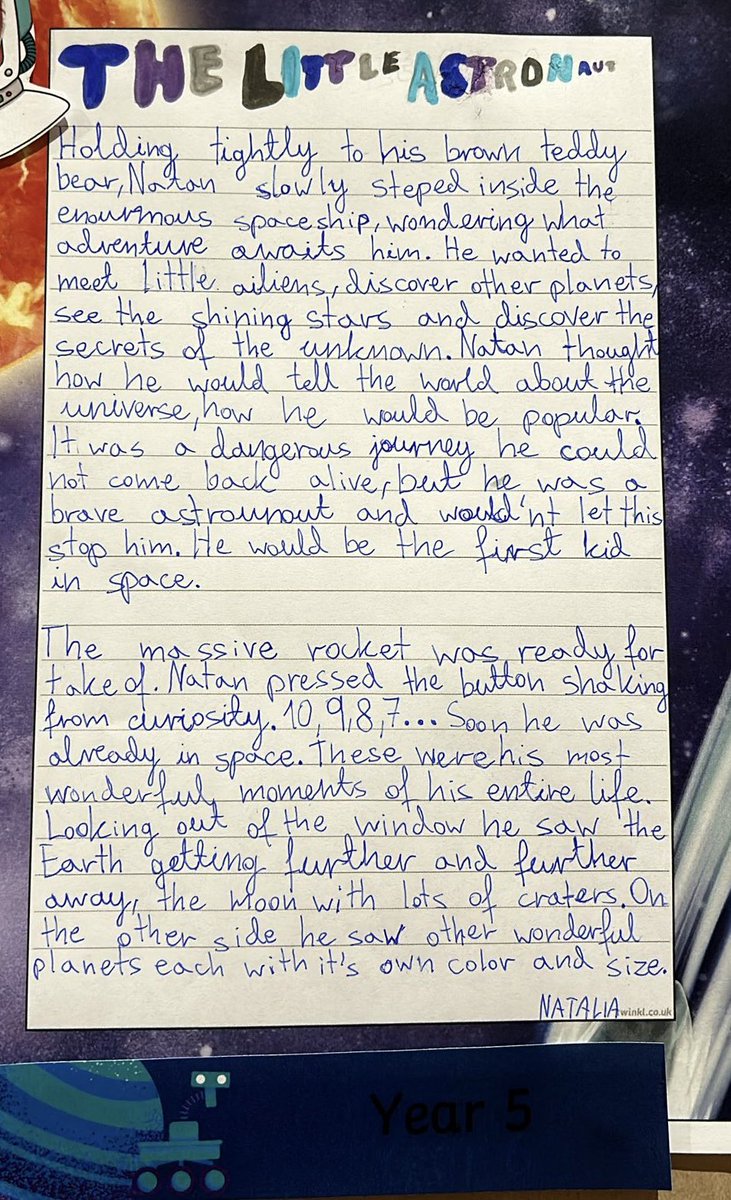 THE LITTLE ASTRONAUT
Holding tightly to his brown teddy
bear, Natan slowly steped inside the
enourmous spaceship, wondering what
adventure awaits him. He wanted to
meet little ailiens, discover other planets,
see the shining stars and discover the
secrets of the unknown. Natan thought
how he would tell the world about the
universe, how he would be popular.
It was a dangerous journey he could
not come back alive, but he was a
brave astrounout and would'nt let this
stop him. He would be the first kid
in space.
The massive rocket was ready for
take of. Natan pressed the button shaking
from curiosity. 10, 9, 8, 7... Soon he was
already in space. These were his most
wonderful moments of his entire life.
Looking out of the window he saw the
Earth getting further and further
away, the Moon with lots of craters. On
the other side he saw other wonderful
planets each with it's own color and size.
NATALIA
winkl.co.uk
Year 5